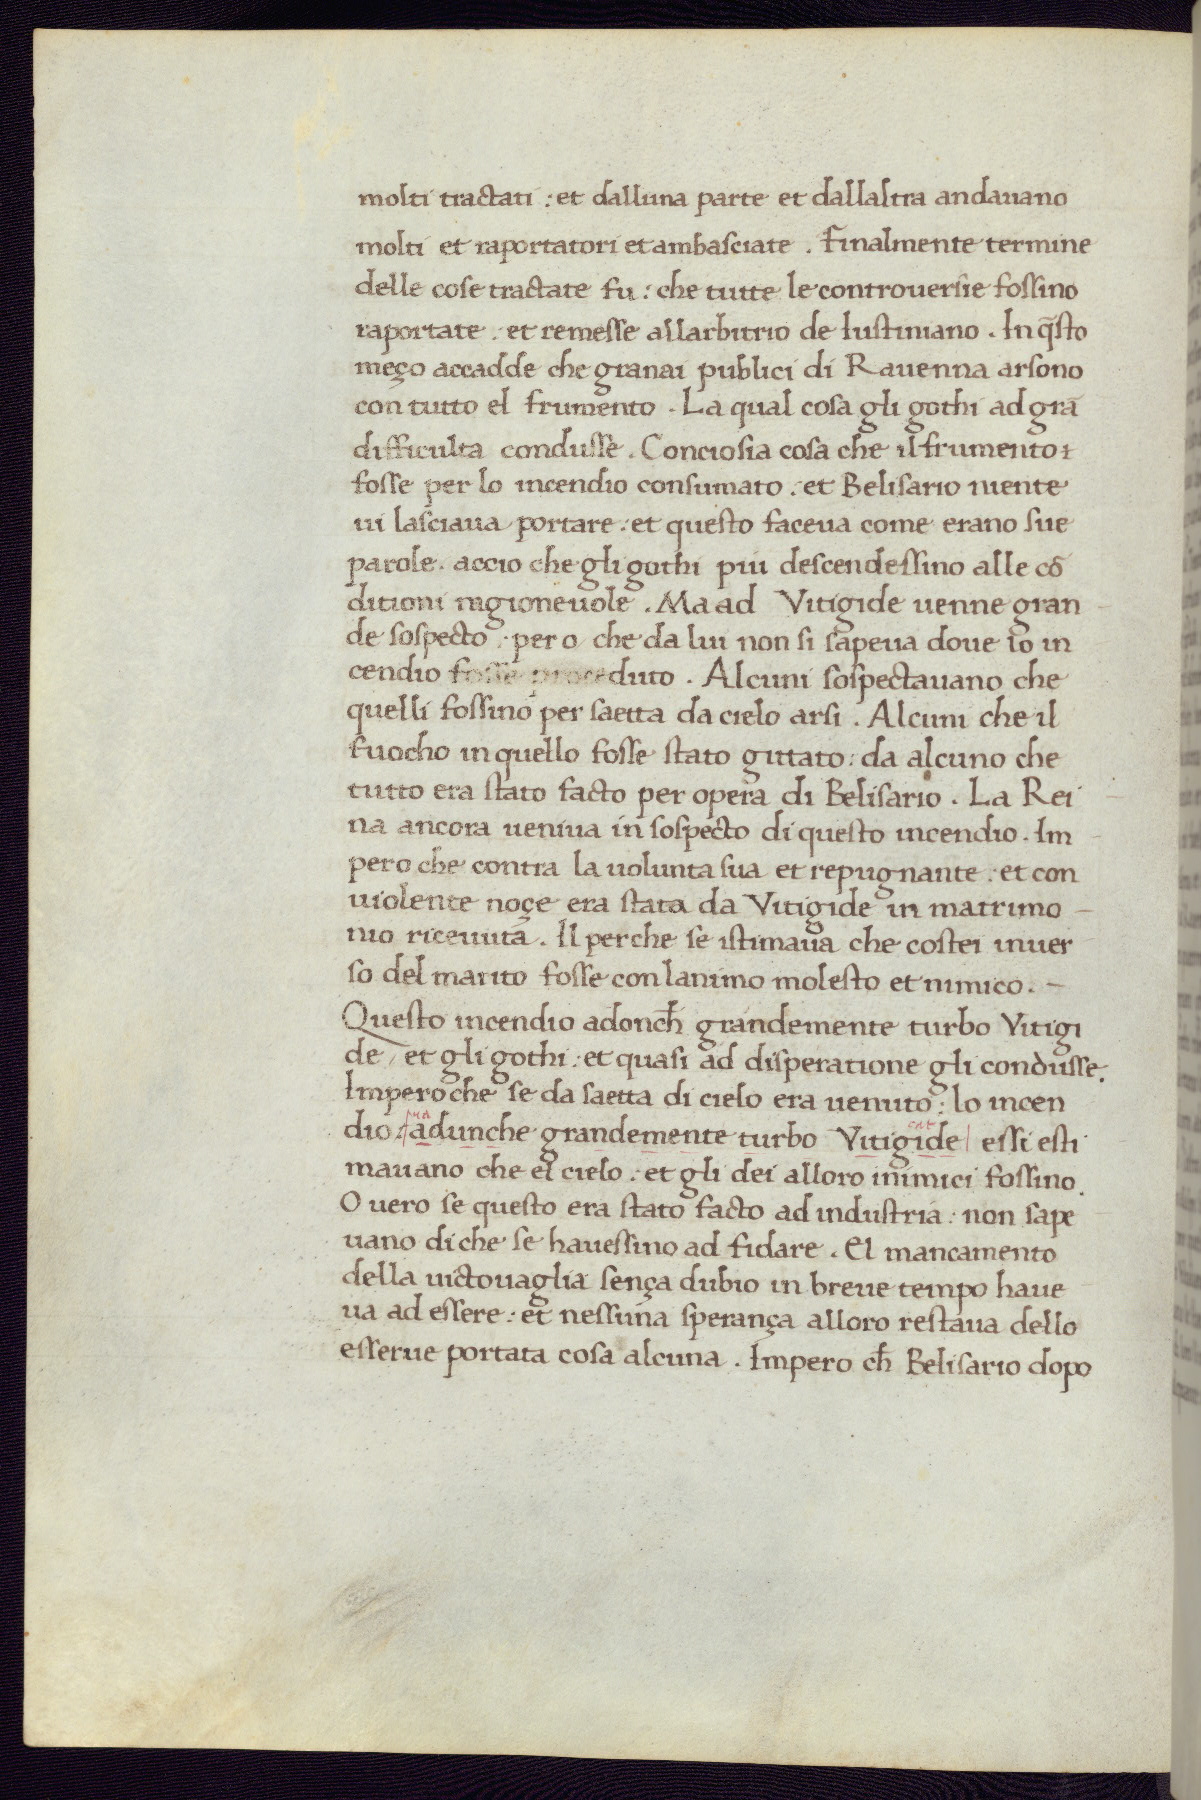 molti tractati : et dalluna parte et dallaltra andauano
molti et raportatori et ambasciate . Finalmente termine
delle cose tractate fu : che tutte le controuersie fossino
raportate : et remesse allarbitrio de Iustiniano . In q̃sto
meço accadde che granai publici di Rauenna arsono
con tutto el frumento . La qual cosa gli gothi ad grã
difficulta condusse . Conciosia cosa che il frumento
fosse per lo incendio consumato : et Belisario niente
ui lasciaua portare : et questo faceua come erano sue
parole . accio che gli gothi piu descendessino alle cõ
ditioni ragioneuole . Ma ad Vitigide uenne gran
de sospecto : pero che da lui non si sapeua doue lo in
cendio fosse proceduto . Alcuni sospectauano che
quelli fossino per saetta da cielo arsi . Alcuni che il
fuocho in quello fosse stato gittato : da alcuno che
tutto era stato facto per opera di Belisario . La Rei
na ancora ueniua in sospecto di questo incendio . Im
pero che contra la uolunta sua et repugnante : et con
uiolente noçe era stata da Vitigide in matrimo
nio riceuuta . Il perche se istimaua che costei inuer
so del marito fosse con lanimo molesto et nimico .
Questo incendio adonch̃ grandemente turbo Vitigi
de / et gli gothi : et quasi ad disperatione gli condusse .
Imperoche se da saetta di cielo era uenuto : lo incen
dio : adunche grandemente turbo Vitigide essi esti
mauano che el cielo : et gli dei alloro inimici fossino .
O uero se questo era stato facto ad industria : non sape
uano di che se hauessino ad fidare . El mancamento
della uictouaglia sença dubio in breue tempo haue
ua ad essere : et nessuna sperança alloro restaua dello
esserue portata cosa alcuna . Impero ch̃ Belisario dopo